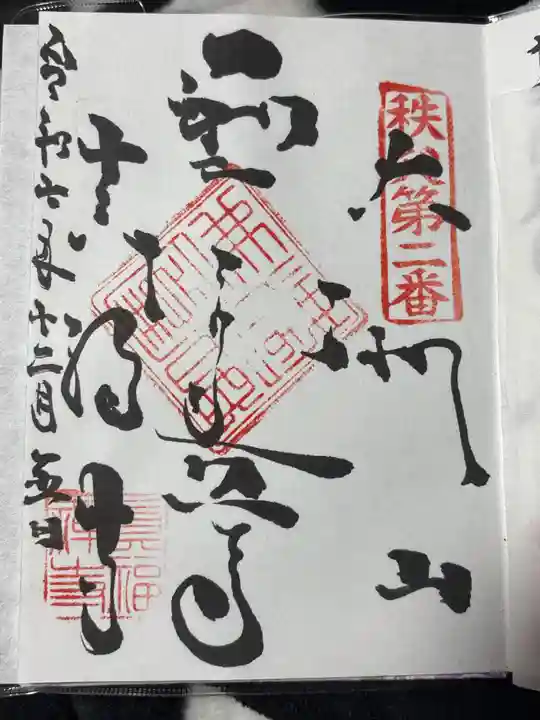 秩父第二番
大棚山
聖観世音
真福寺
令和六年十二月
真福禅寺